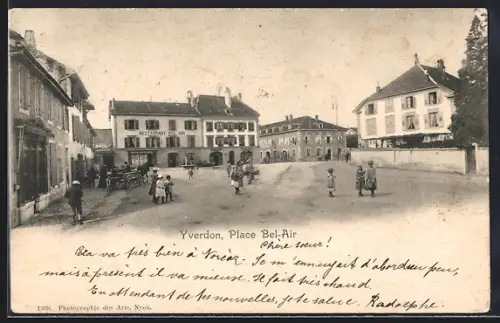 RESTAURANT BEL-AIR
Yverdon, Place Bel-Air
Chère sœur!
Cela va très bien à Voréar. Je m'ennuyait d'abord un peu,
mais à présent il va mieuse. Il fait très chaud.
En attendant de tes nouvelles, je te salue. Radolphe.
1209. Photographie des Arts, Nyon.